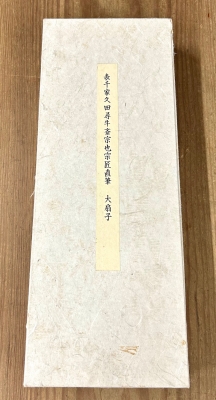 表千家久田尋牛斎宗也宗匠直筆 大扇子